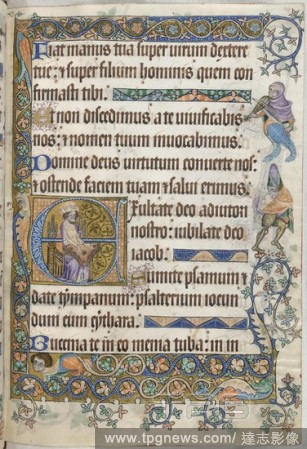 Fiat manus tua super virum dextere
tue: et super filium hominis quem con
firmasti tibi.
Et non discedimus a te vivificabis
nos: et nomen tuum invocabimus.
Domine deus virtutum converte nos:
et ostende faciem tuam et salvi erimus.
Exultate deo adiutori
nostro: iubilate deo
iacob.
Sumite psalmum et
date tympanum: psalterium iocun
dum cum cythara.
Bucinate in neo menia tuba: in in
www.tpgnews.com / 達志影像